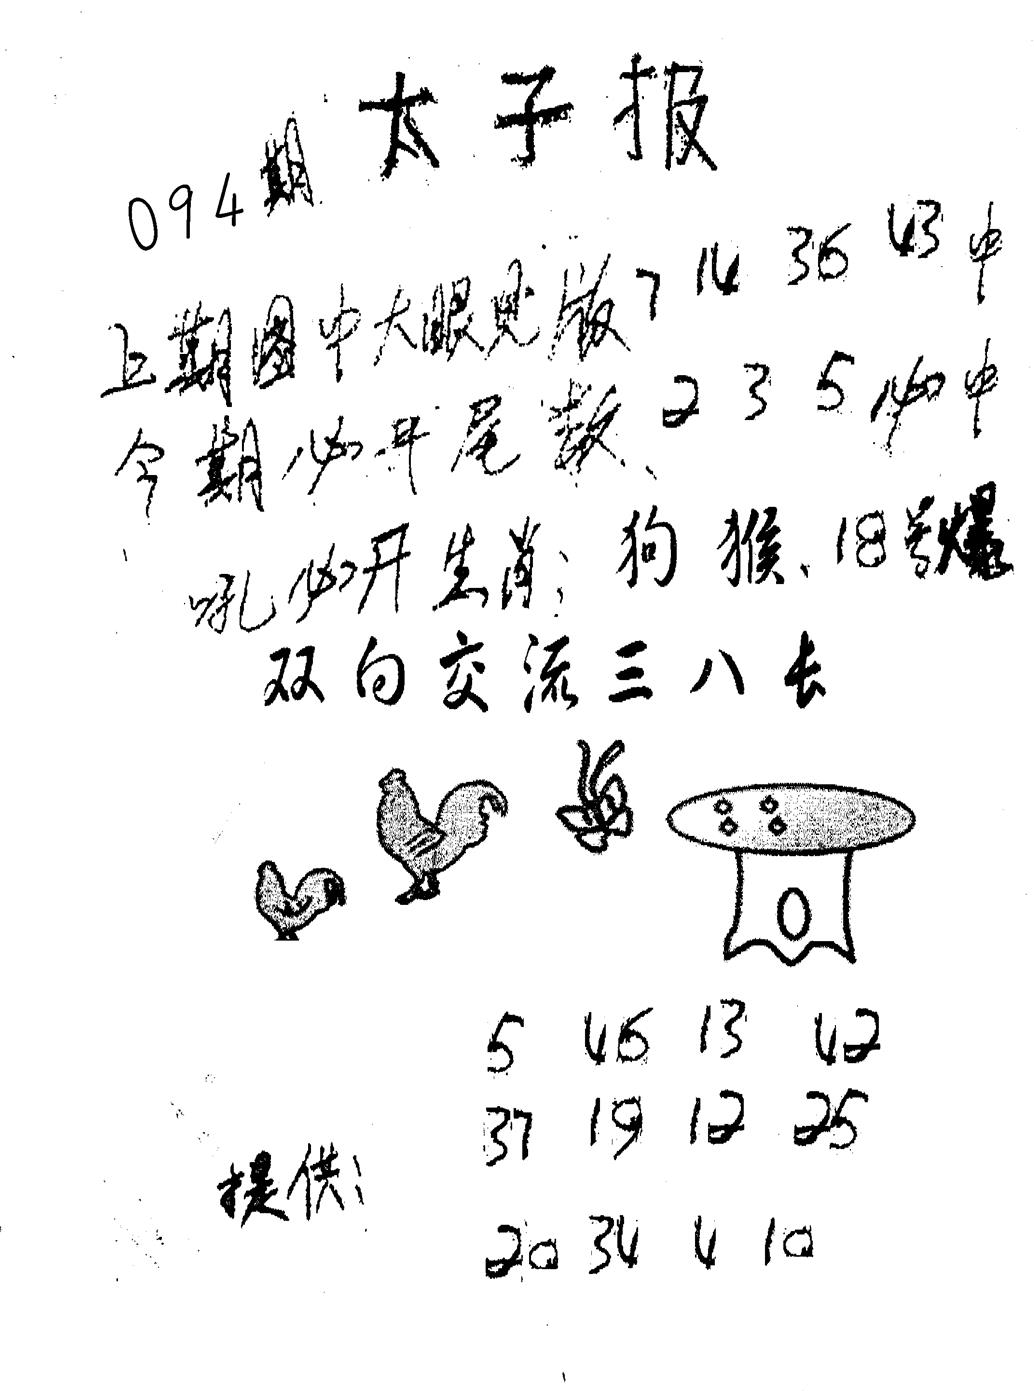 太子报
094期
上期图中大眼见版7 14 36 43中
今期必开尾数、2 3 5必中
吼必开生肖：狗 猴、18号爆
双向交流三八长
5 46 13 42
37 19 12 25
提供：
20 34 4 10